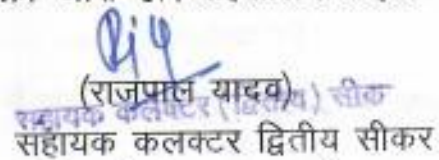 (राजपाल यादव)
सहायक कलक्टर (द्वितीय) सीकर
सहायक कलक्टर द्वितीय सीकर